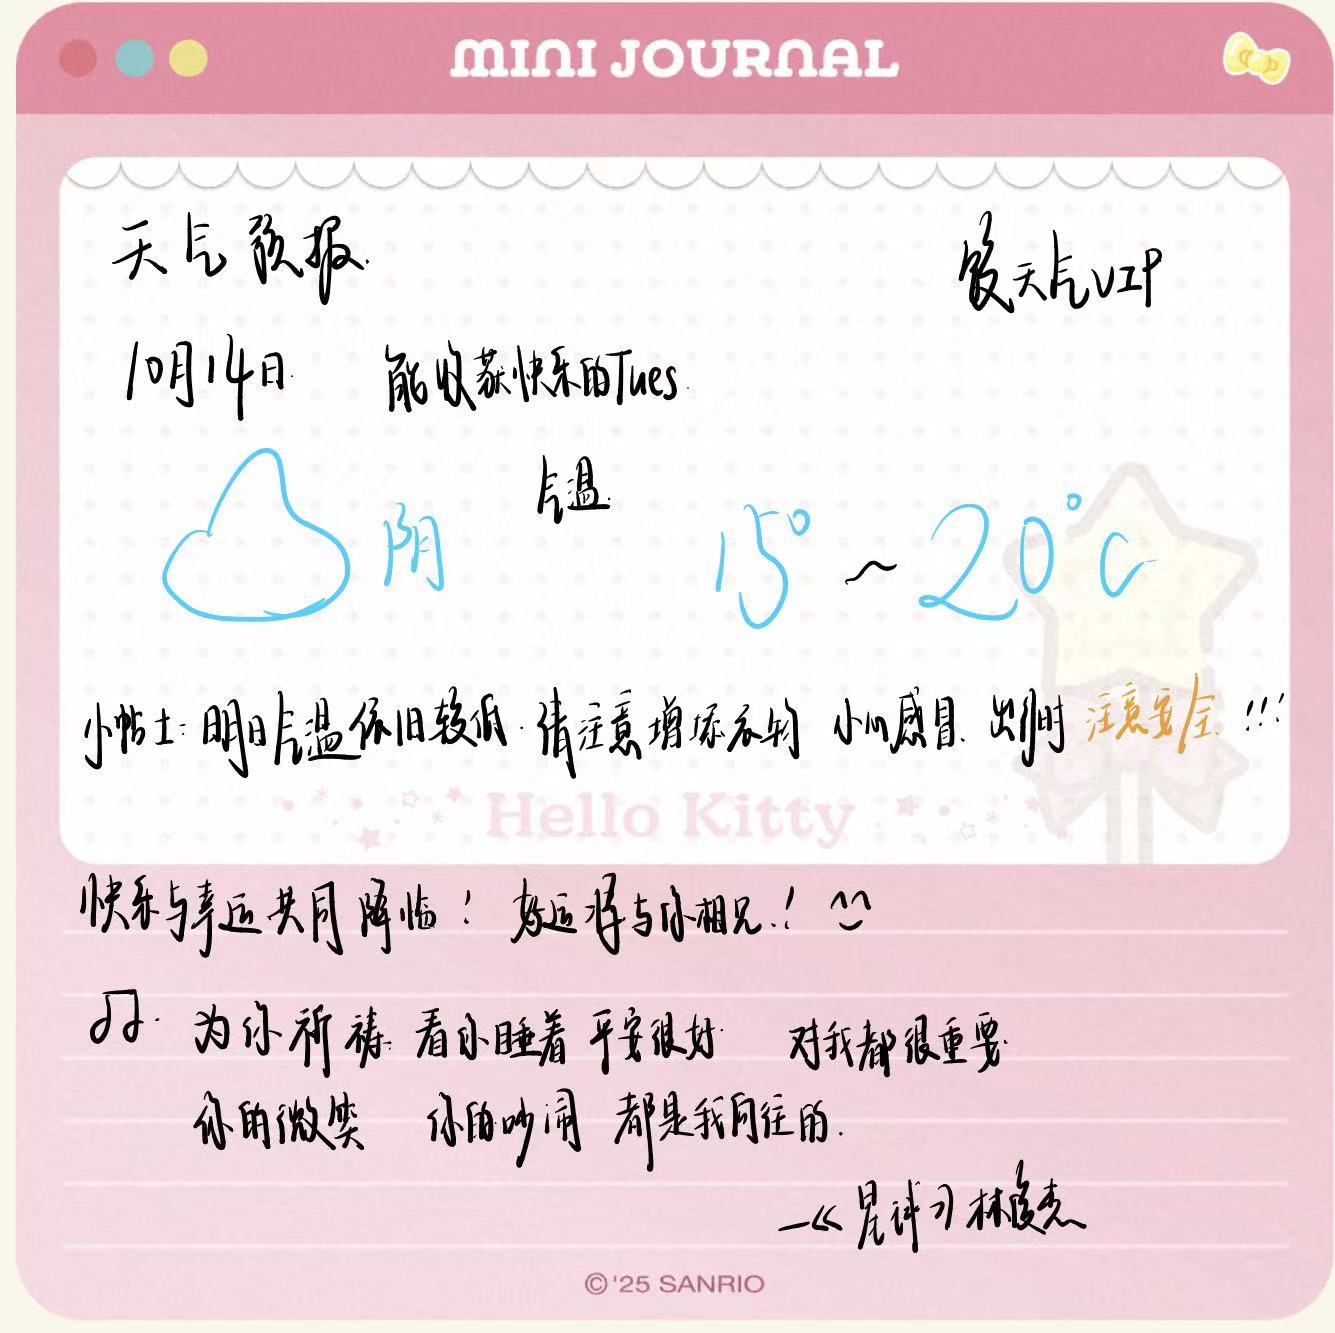 MINI JOURNAL
天气预报.
天气VIP
10月14日 能收获快乐的Tues.
气温
阴 15° ~ 20°C
小帖士：明日气温依旧较低.请注意增添衣物 小心感冒.出行时 注意安全!!!
Hello Kitty
快乐与幸运共同降临！好运将与你相见！^^
♫. 为你祈祷 看你睡着 平安很好 对我都很重要.
你的微笑 你的吵闹 都是我向往的.
—《星球》林俊杰
©'25 SANRIO